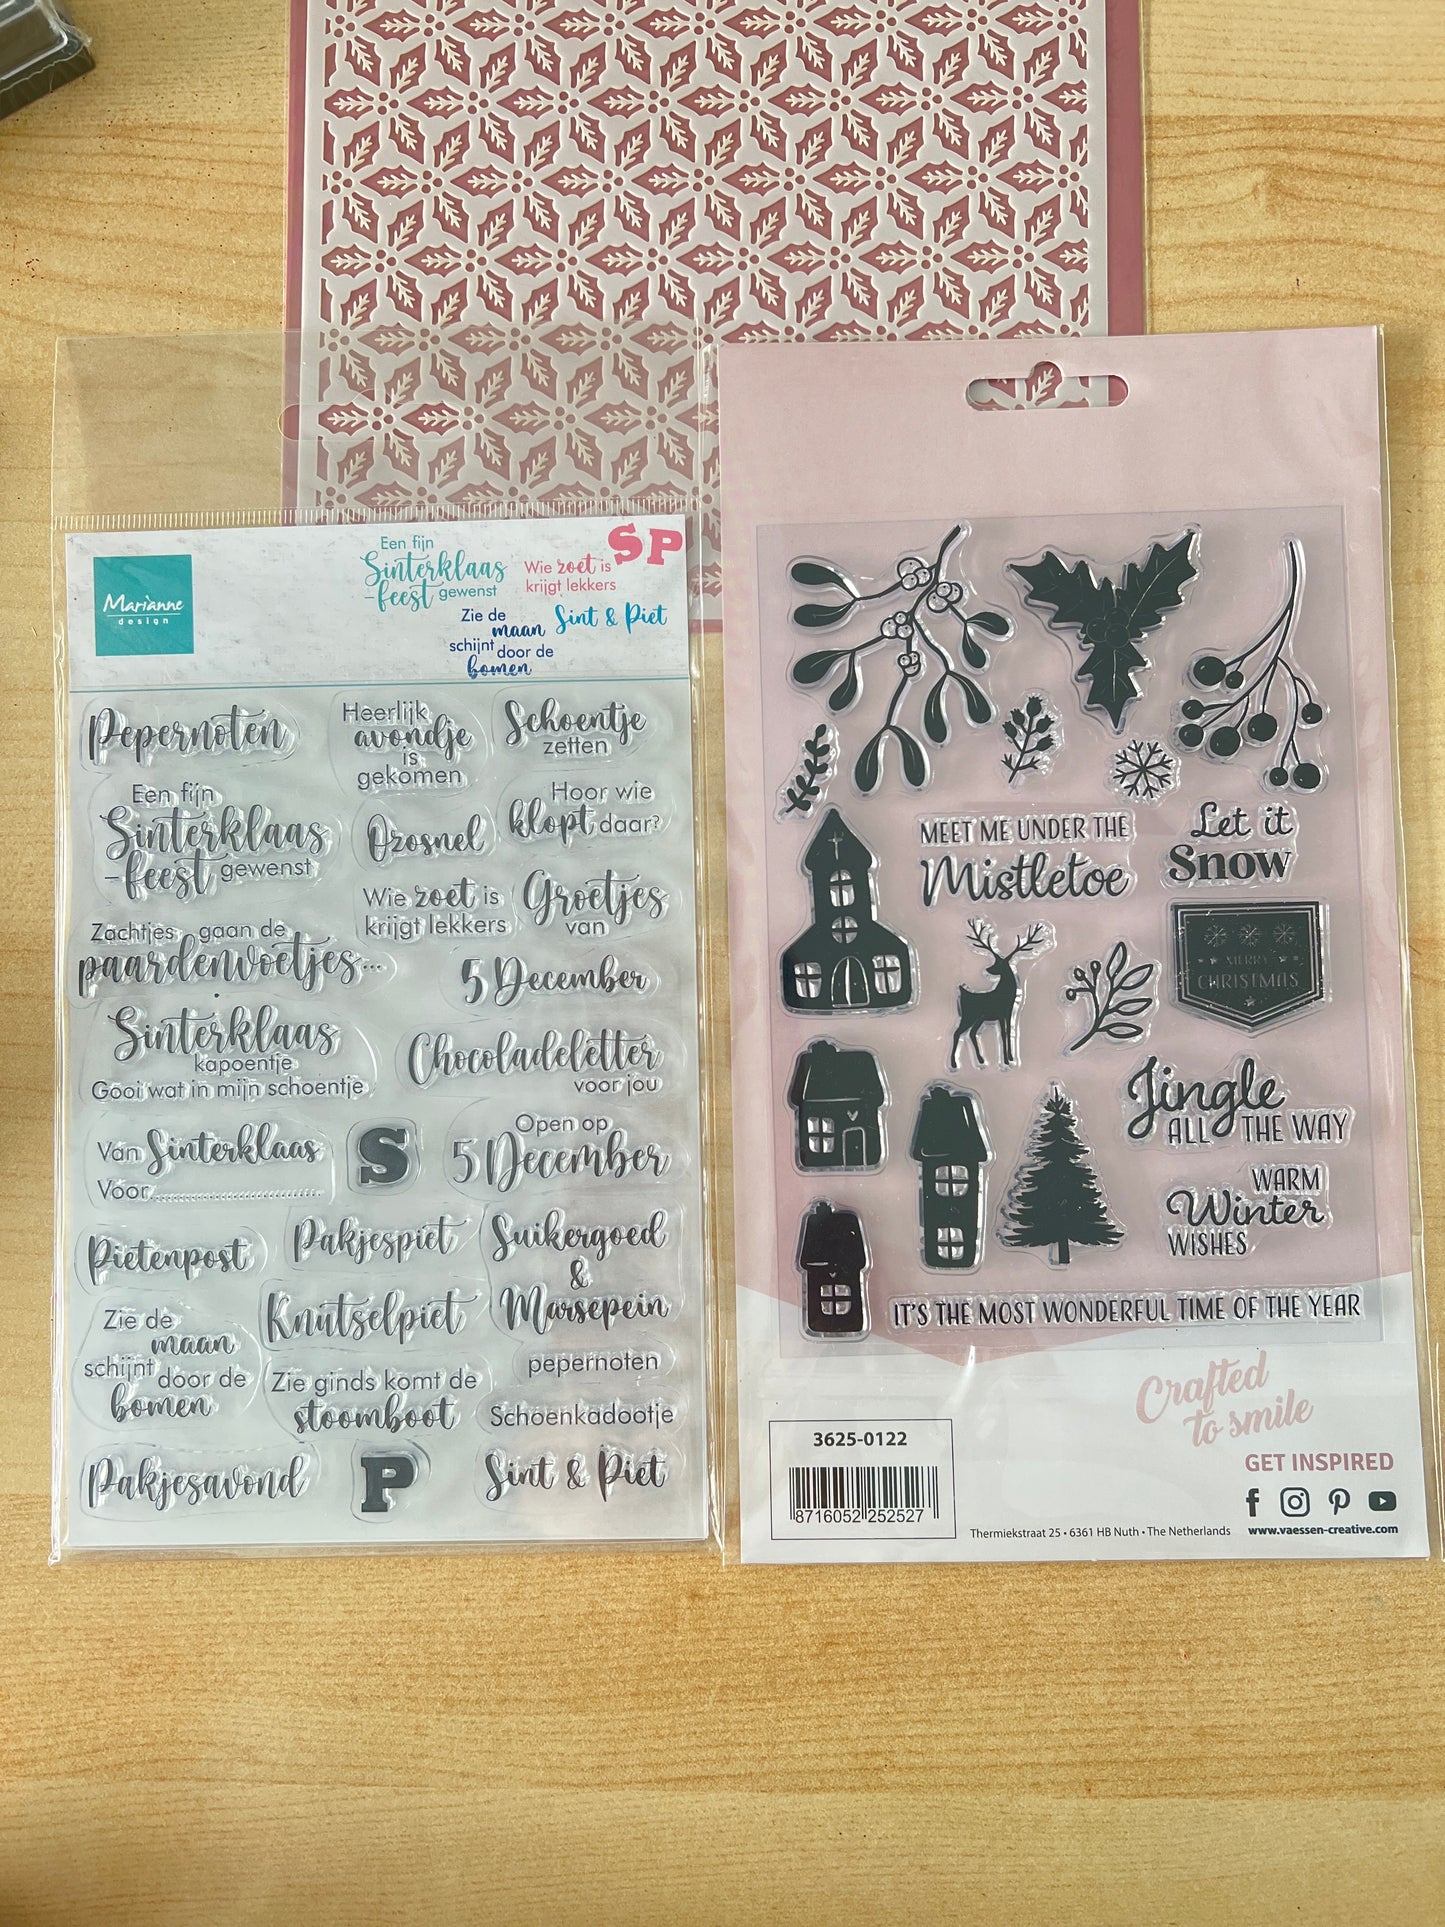 Marianne
design
Een fijn
Sinterklaas
-feest gewenst
Wie zoet is
krijgt lekkers
SP
Zie de
maan
schijnt door de
bomen
Sint & Piet
Pepernoten
Heerlijk
avondje
is
gekomen
Schoentje
zetten
Een fijn
Sinterklaas
-feest gewenst
Ozosnel
Hoor wie
klopt daar?
Wie zoet is
krijgt lekkers
Groetjes
van
Zachtjes gaan de
paardenvoetjes...
5 December
Sinterklaas
kapoentje
Gooi wat in mijn schoentje
Chocoladeletter
voor jou
Van Sinterklaas
Voor..............................
S
Open op
5 December
Pietenpost
Pakjespiet
Suikergoed
&
Marsepein
Knutselpiet
Zie de
maan
schijnt door de
bomen
Zie ginds komt de
stoomboot
pepernoten
Schoenkadootje
Pakjesavond
P
Sint & Piet
MEET ME UNDER THE
Mistletoe
Let it
Snow
MERRY
CHRISTMAS
Jingle
ALL THE WAY
WARM
Winter
WISHES
IT'S THE MOST WONDERFUL TIME OF THE YEAR
Crafted
to smile
3625-0122
8716052 252527
GET INSPIRED
Thermiekstraat 25 • 6361 HB Nuth • The Netherlands
www.vaessen-creative.com